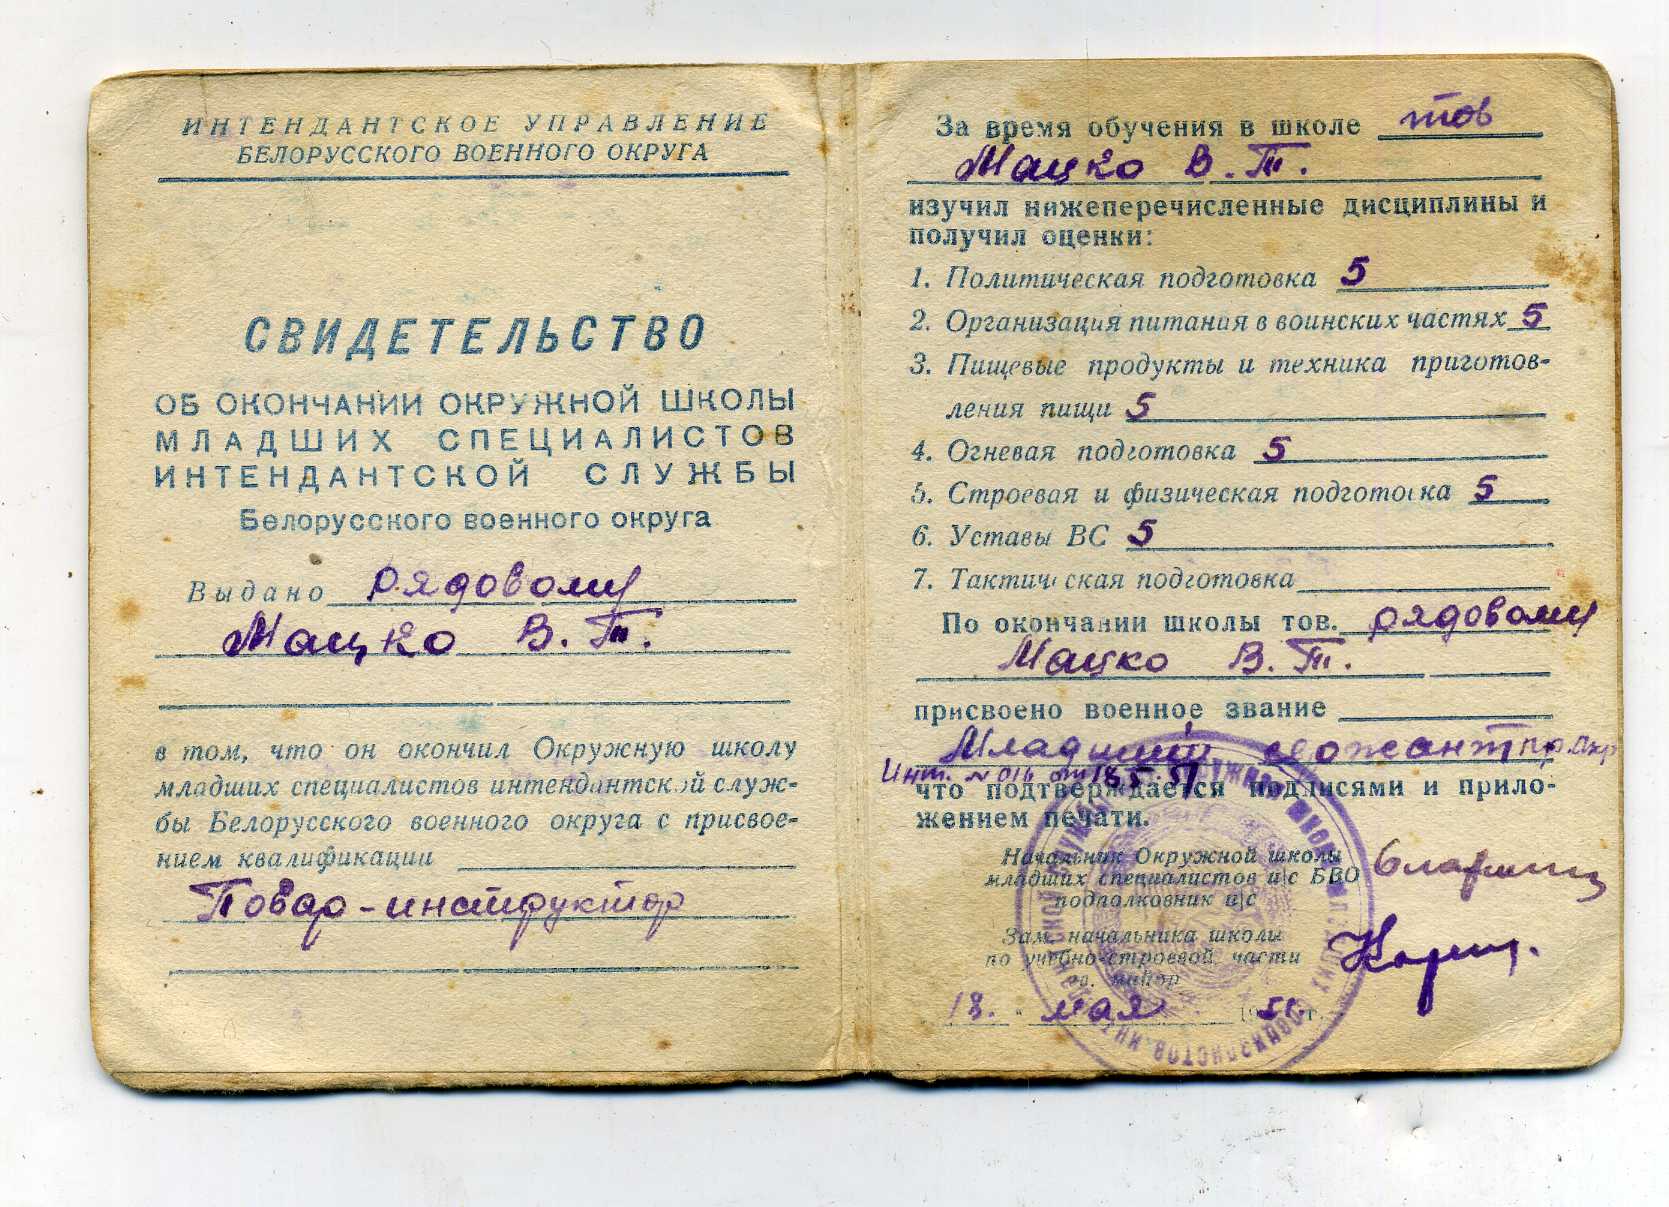 ИНТЕНДАНТСКОЕ УПРАВЛЕНИЕ
БЕЛОРУССКОГО ВОЕННОГО ОКРУГА
СВИДЕТЕЛЬСТВО
ОБ ОКОНЧАНИИ ОКРУЖНОЙ ШКОЛЫ
МЛАДШИХ СПЕЦИАЛИСТОВ
ИНТЕНДАНТСКОЙ СЛУЖБЫ
Белорусского военного округа
Выдано рядовому
Мацко В. Т.
в том, что он окончил Окружную школу
младших специалистов интендантской служ-
бы Белорусского военного округа с присвое-
нием квалификации
Повар-инструктор
За время обучения в школе тов
Мацко В. Т.
изучил нижеперечисленные дисциплины и
получил оценки:
1. Политическая подготовка 5
2. Организация питания в воинских частях 5
3. Пищевые продукты и техника приготов-
ления пищи 5
4. Огневая подготовка 5
5. Строевая и физическая подготовка 5
6. Уставы ВС 5
7. Тактическая подготовка
По окончании школы тов. рядовому
Мацко В. Т.
присвоено военное звание
Младший сержант пр.
Инт. № 016 от 18.5.51
что подтверждается подписями и прило-
жением печати.
Начальник Окружной школы
младших специалистов и/с БВО
подполковник и/с
Зам. начальника школы
по учебно-строевой части
гв. майор
18 " мая 1951 г.